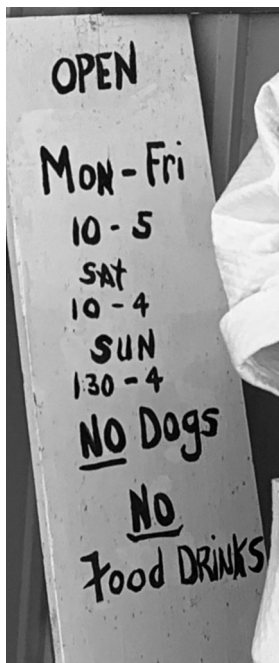 OPEN
Mon-Fri
10-5
SAt
10-4
SUN
1:30-4
NO Dogs
NO
Food DRiNKS